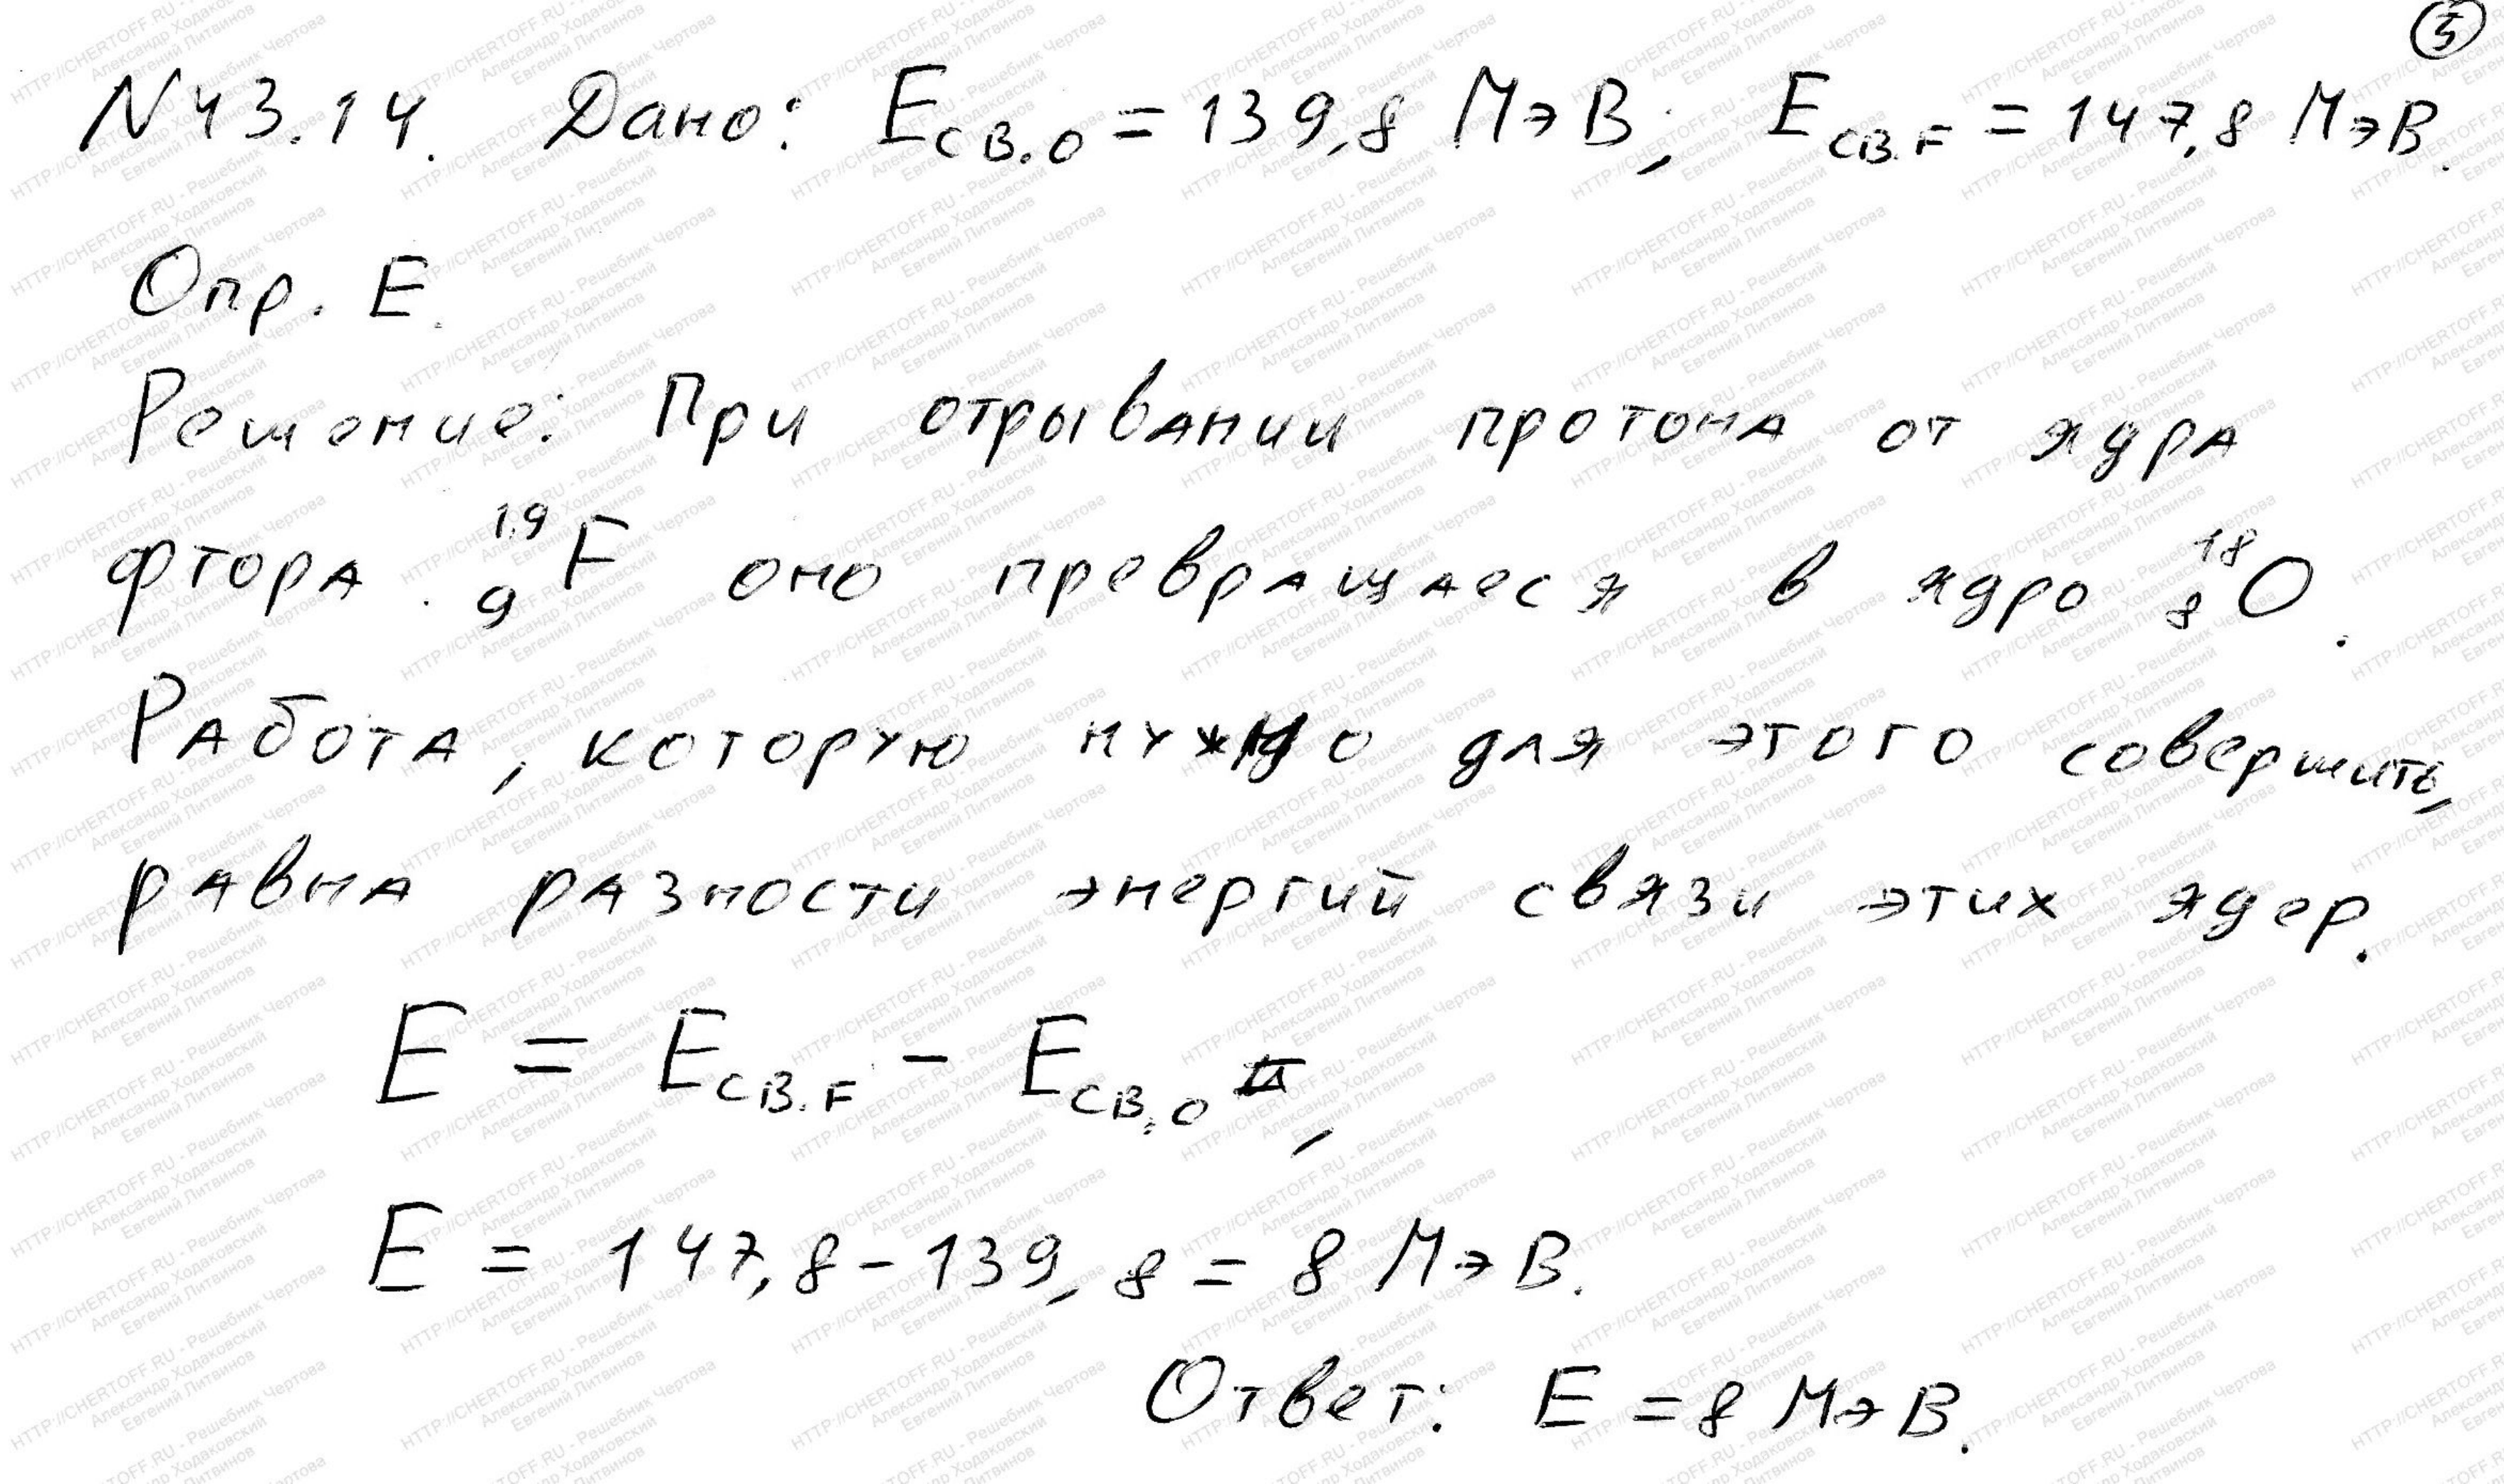 5
N43.14. Дано: Eсв.О = 139,8 МэВ; Eсв.F = 147,8 МэВ.
Опр. E.
Решение: При отрывании протона от ядра
фтора ¹⁹₉F оно превращаеся в ядро ¹⁸₈O.
Работа, которую нужно для этого совершить,
равна разности энергий связи этих ядер.
E = Eсв.F - Eсв.О,
E = 147,8 - 139,8 = 8 МэВ.
Ответ: E = 8 МэВ.
HTTP://CHERTOFF.RU - Решебник Чертова
Александр Ходаковский
Евгений Литвинов